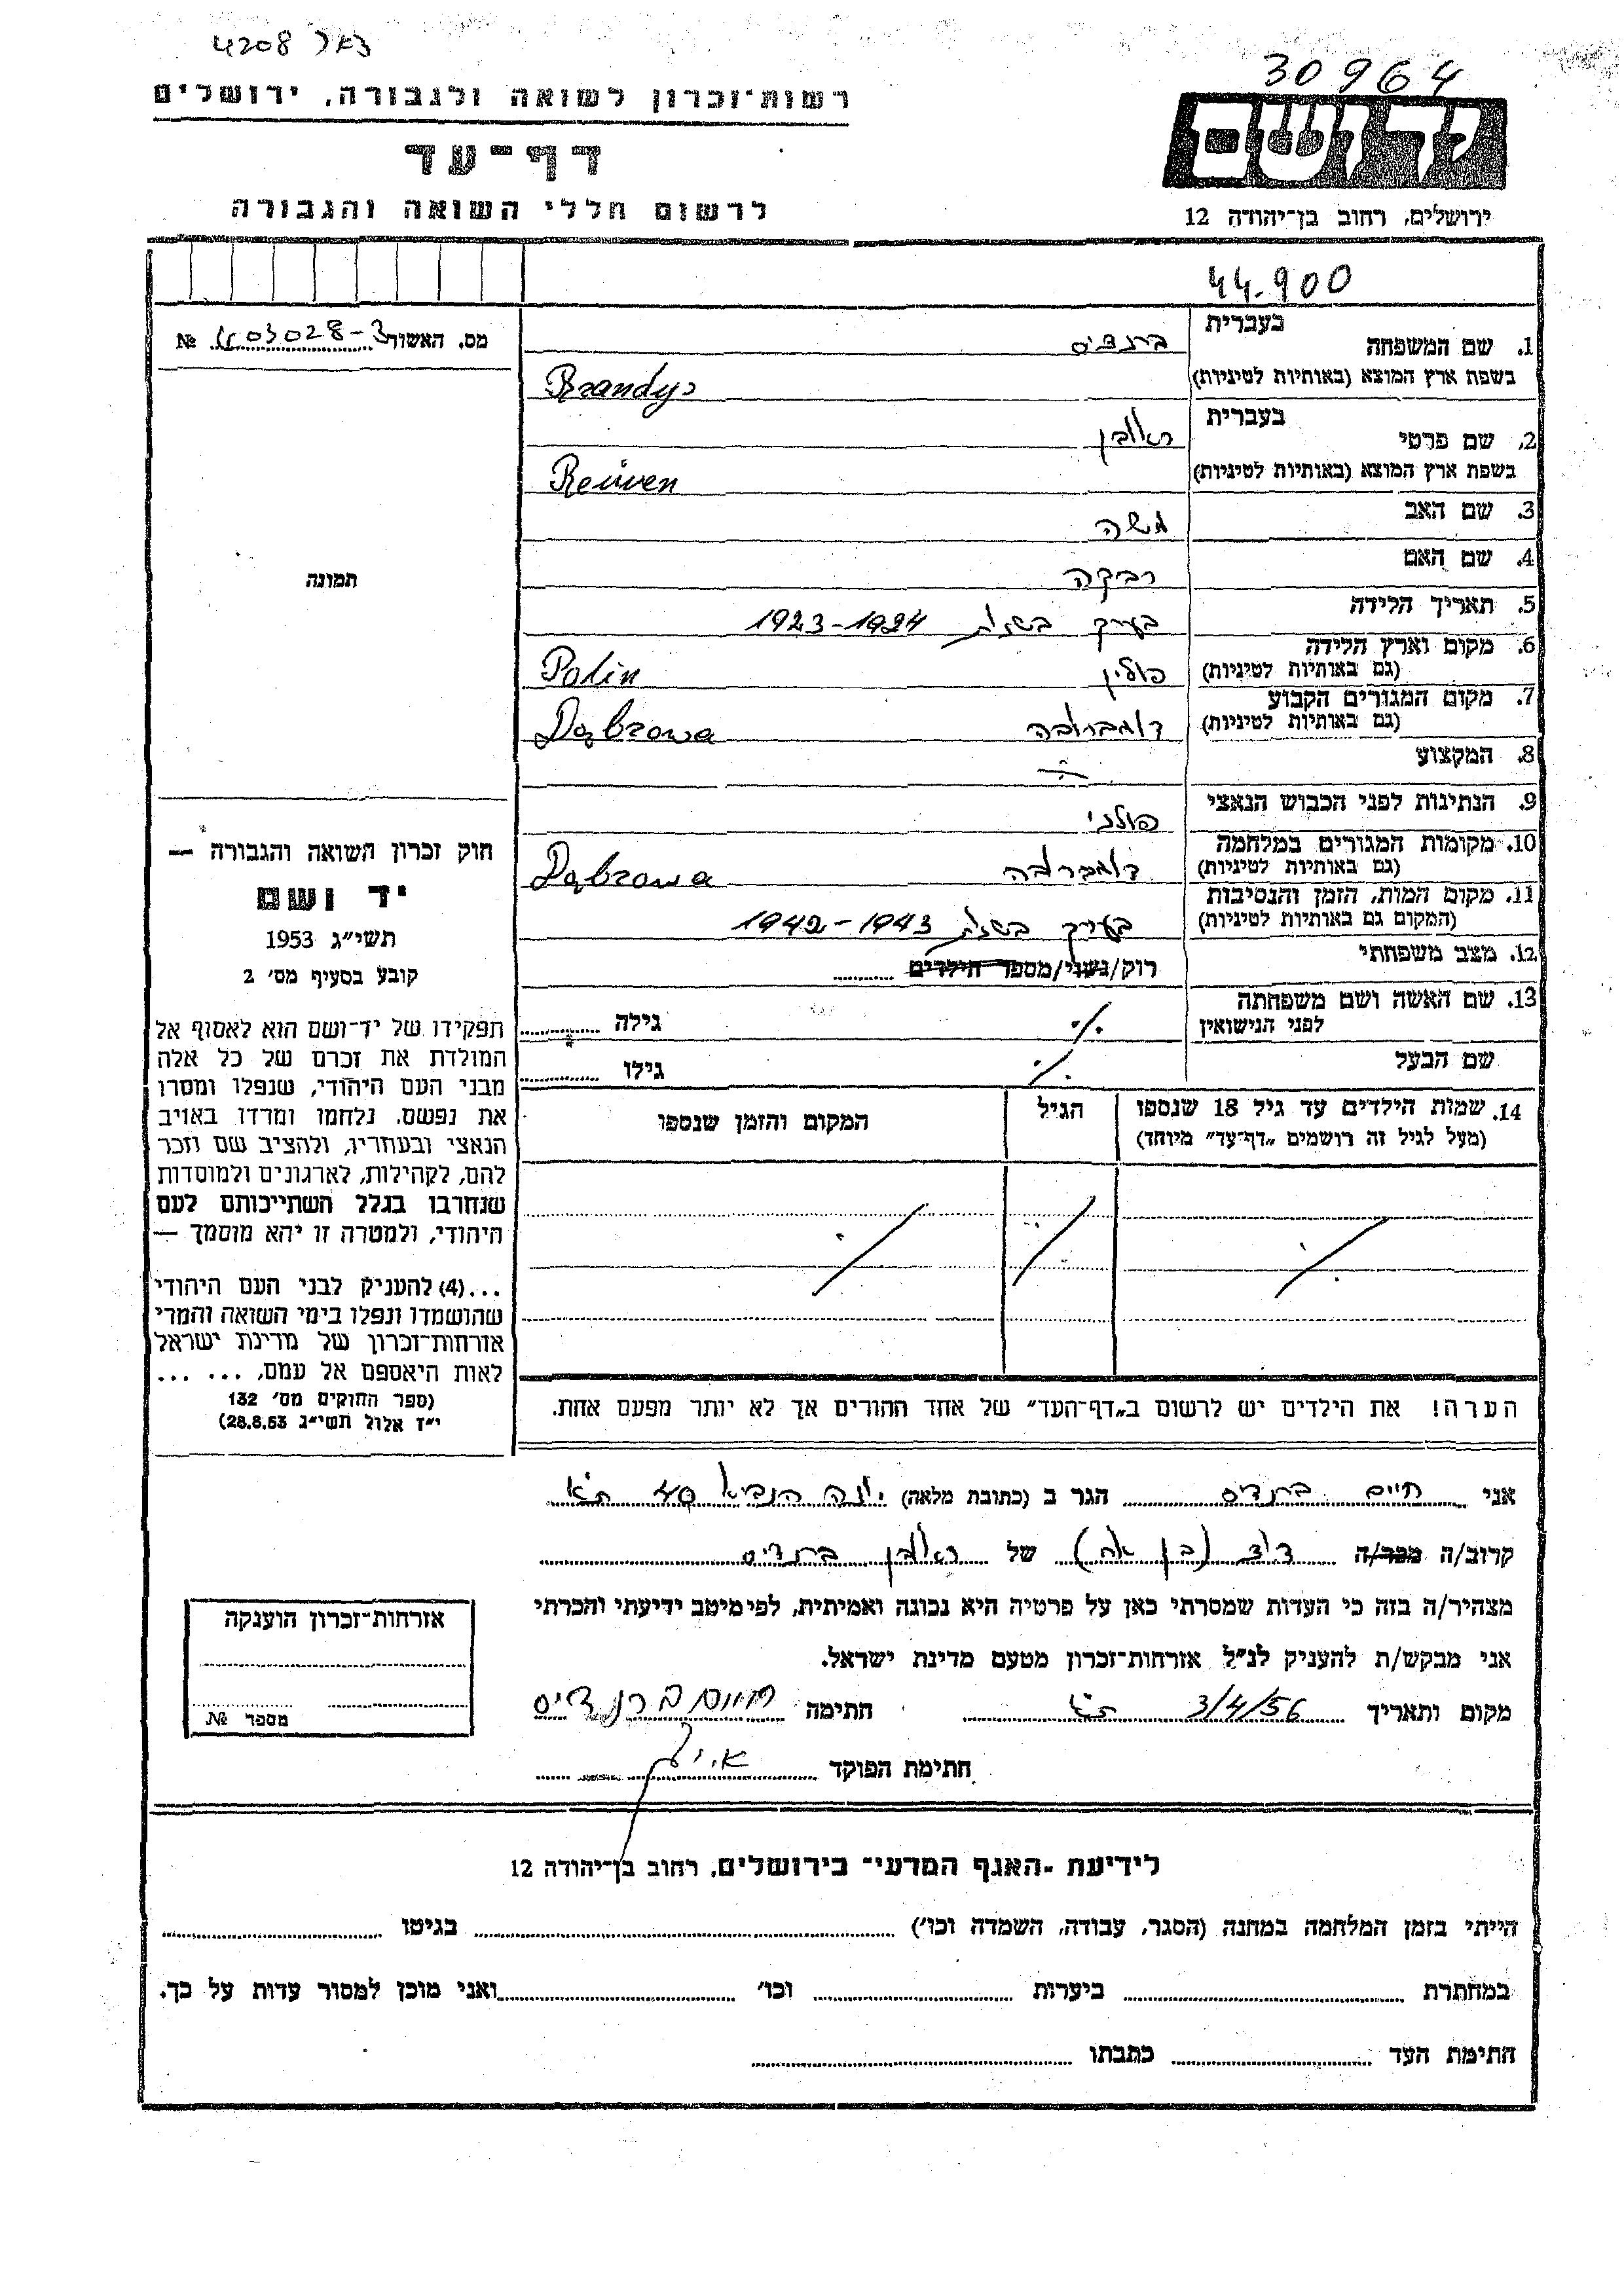 4208
30964
רשות־זכרון לשואה ולגבורה, ירושלים
יד ושם
דף־עד
לרשום חללי השואה והגבורה
ירושלים, רחוב בן־יהודה 12
44.900
1. שם המשפחה בעברית ברנדיס
בשפת ארץ המוצא (באותיות לטיניות) Brandys
2. שם פרטי בעברית ראובן
בשפת ארץ המוצא (באותיות לטיניות) Reuven
3. שם האב משה
4. שם האם רבקה
5. תאריך הלידה בערך בשנת 1923-1924
6. מקום וארץ הלידה (גם באותיות לטיניות) פולין Polin
7. מקום המגורים הקבוע (גם באותיות לטיניות) דומברובה Dąbrowa
8. המקצוע
9. הנתינות לפני הכבוש הנאצי פולני
10. מקומות המגורים במלחמה (גם באותיות לטיניות) דומברובה Dąbrowa
11. מקום המות, הזמן והנסיבות (המקום גם באותיות לטיניות) בערך בשנת 1942-1943
12. מצב משפחתי רוק/נשוי/מספר הילדים
13. שם האשה ושם משפחתה לפני הנישואין גילה
שם הבעל גילו
14. שמות הילדים עד גיל 18 שנספו הגיל המקום והזמן שנספו
(מעל לגיל זה רושמים „דף־עד" מיוחד)
הערה! את הילדים יש לרשום ב„דף־העד" של אחד ההורים אך לא יותר מפעם אחת.
מס. האשור 403028-3 №
תמונה
חוק זכרון השואה והגבורה —
יד ושם
תשי"ג 1953
קובע בסעיף מס' 2
תפקידו של יד־ושם הוא לאסוף אל
המולדת את זכרם של כל אלה
מבני העם היהודי, שנפלו ומסרו
את נפשם, נלחמו ומרדו באויב
הנאצי ובעוזריו, ולהציב שם וזכר
להם, לקהילות, לארגונים ולמוסדות
שנחרבו בגלל השתייכותם לעם
היהודי, ולמטרה זו יהא מוסמך —
...(4) להעניק לבני העם היהודי
שהושמדו ונפלו בימי השואה והמרי
אזרחות־זכרון של מדינת ישראל
לאות היאספם אל עמם, ... ...
(ספר החוקים מס' 132
י"ז אלול תשי"ג 28.8.53)
אני חיים ברנדיס הגר ב (כתובת מלאה) יונה הנביא 40 ת"א
קרוב/ה מכר/ה דוד (בן אח) של ראובן ברנדיס
מצהיר/ה בזה כי העדות שמסרתי כאן על פרטיה היא נכונה ואמיתית, לפי מיטב ידיעתי והכרתי
אני מבקש/ת להעניק לנ"ל אזרחות־זכרון מטעם מדינת ישראל.
מקום ותאריך ת"א 3/4/56 חתימה חיים ברנדיס
חתימת הפוקד
אזרחות־זכרון הוענקה
מספר №
לידיעת „האגף המדעי" בירושלים, רחוב בן־יהודה 12
הייתי בזמן המלחמה במחנה (הסגר, עבודה, השמדה וכו') בגיטו
במחתרת ביערות וכו' ואני מוכן למסור עדות על כך.
חתימת העד כתבתו